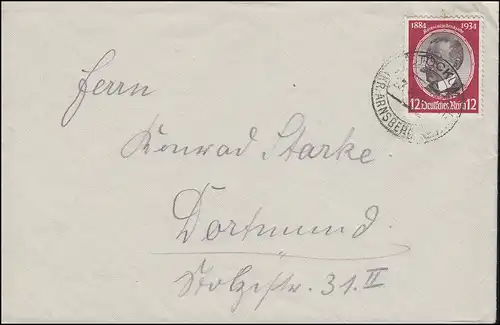 1884 1934
12 Deutsches Reich 12
(KR. ARNSBERG)
Herrn
Konrad Starke.
Dortmund
Stolzestr. 31. II